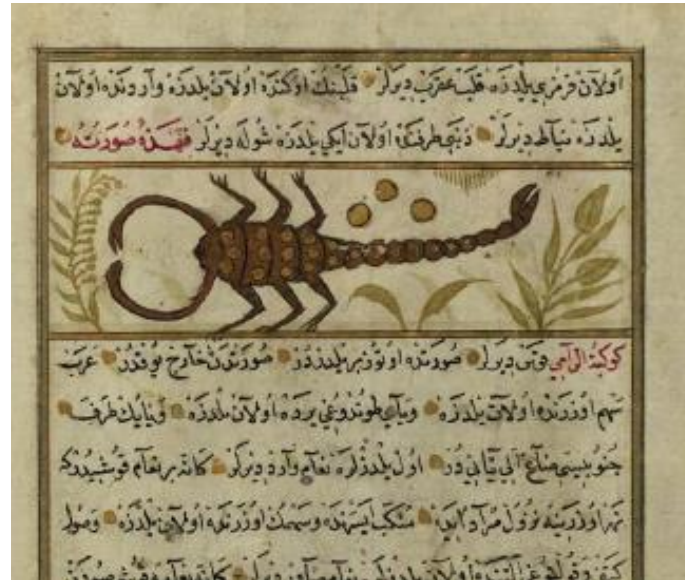 اولان قرمزی یلدزه قلب عقرب دیرلر قلبنك اوكنده اولان یلدزه وآردنده اولان
یلدزه نیاط دیرلر ذنبی طرفنده اولان ایكی یلدزه شوله دیرلر فهذه صورته
كوكبة الرامی قوس دیرلر صورتنده اوتوز بر یلدزدر صورتدن خارج یوقدر عرب
سهم اوزرنده اولان یلدزه ویایی طوتدوغی یرده اولان یلدزه ویایك طرف
جنوبیسی اول یلدزلره نعام وارد دیرلر كانه بر نعام قوشیدركه
نهر اوزرینه نزول مراد ایدر منكب ایسرنده وسهمك اوزرنده اولان یلدزه وصول